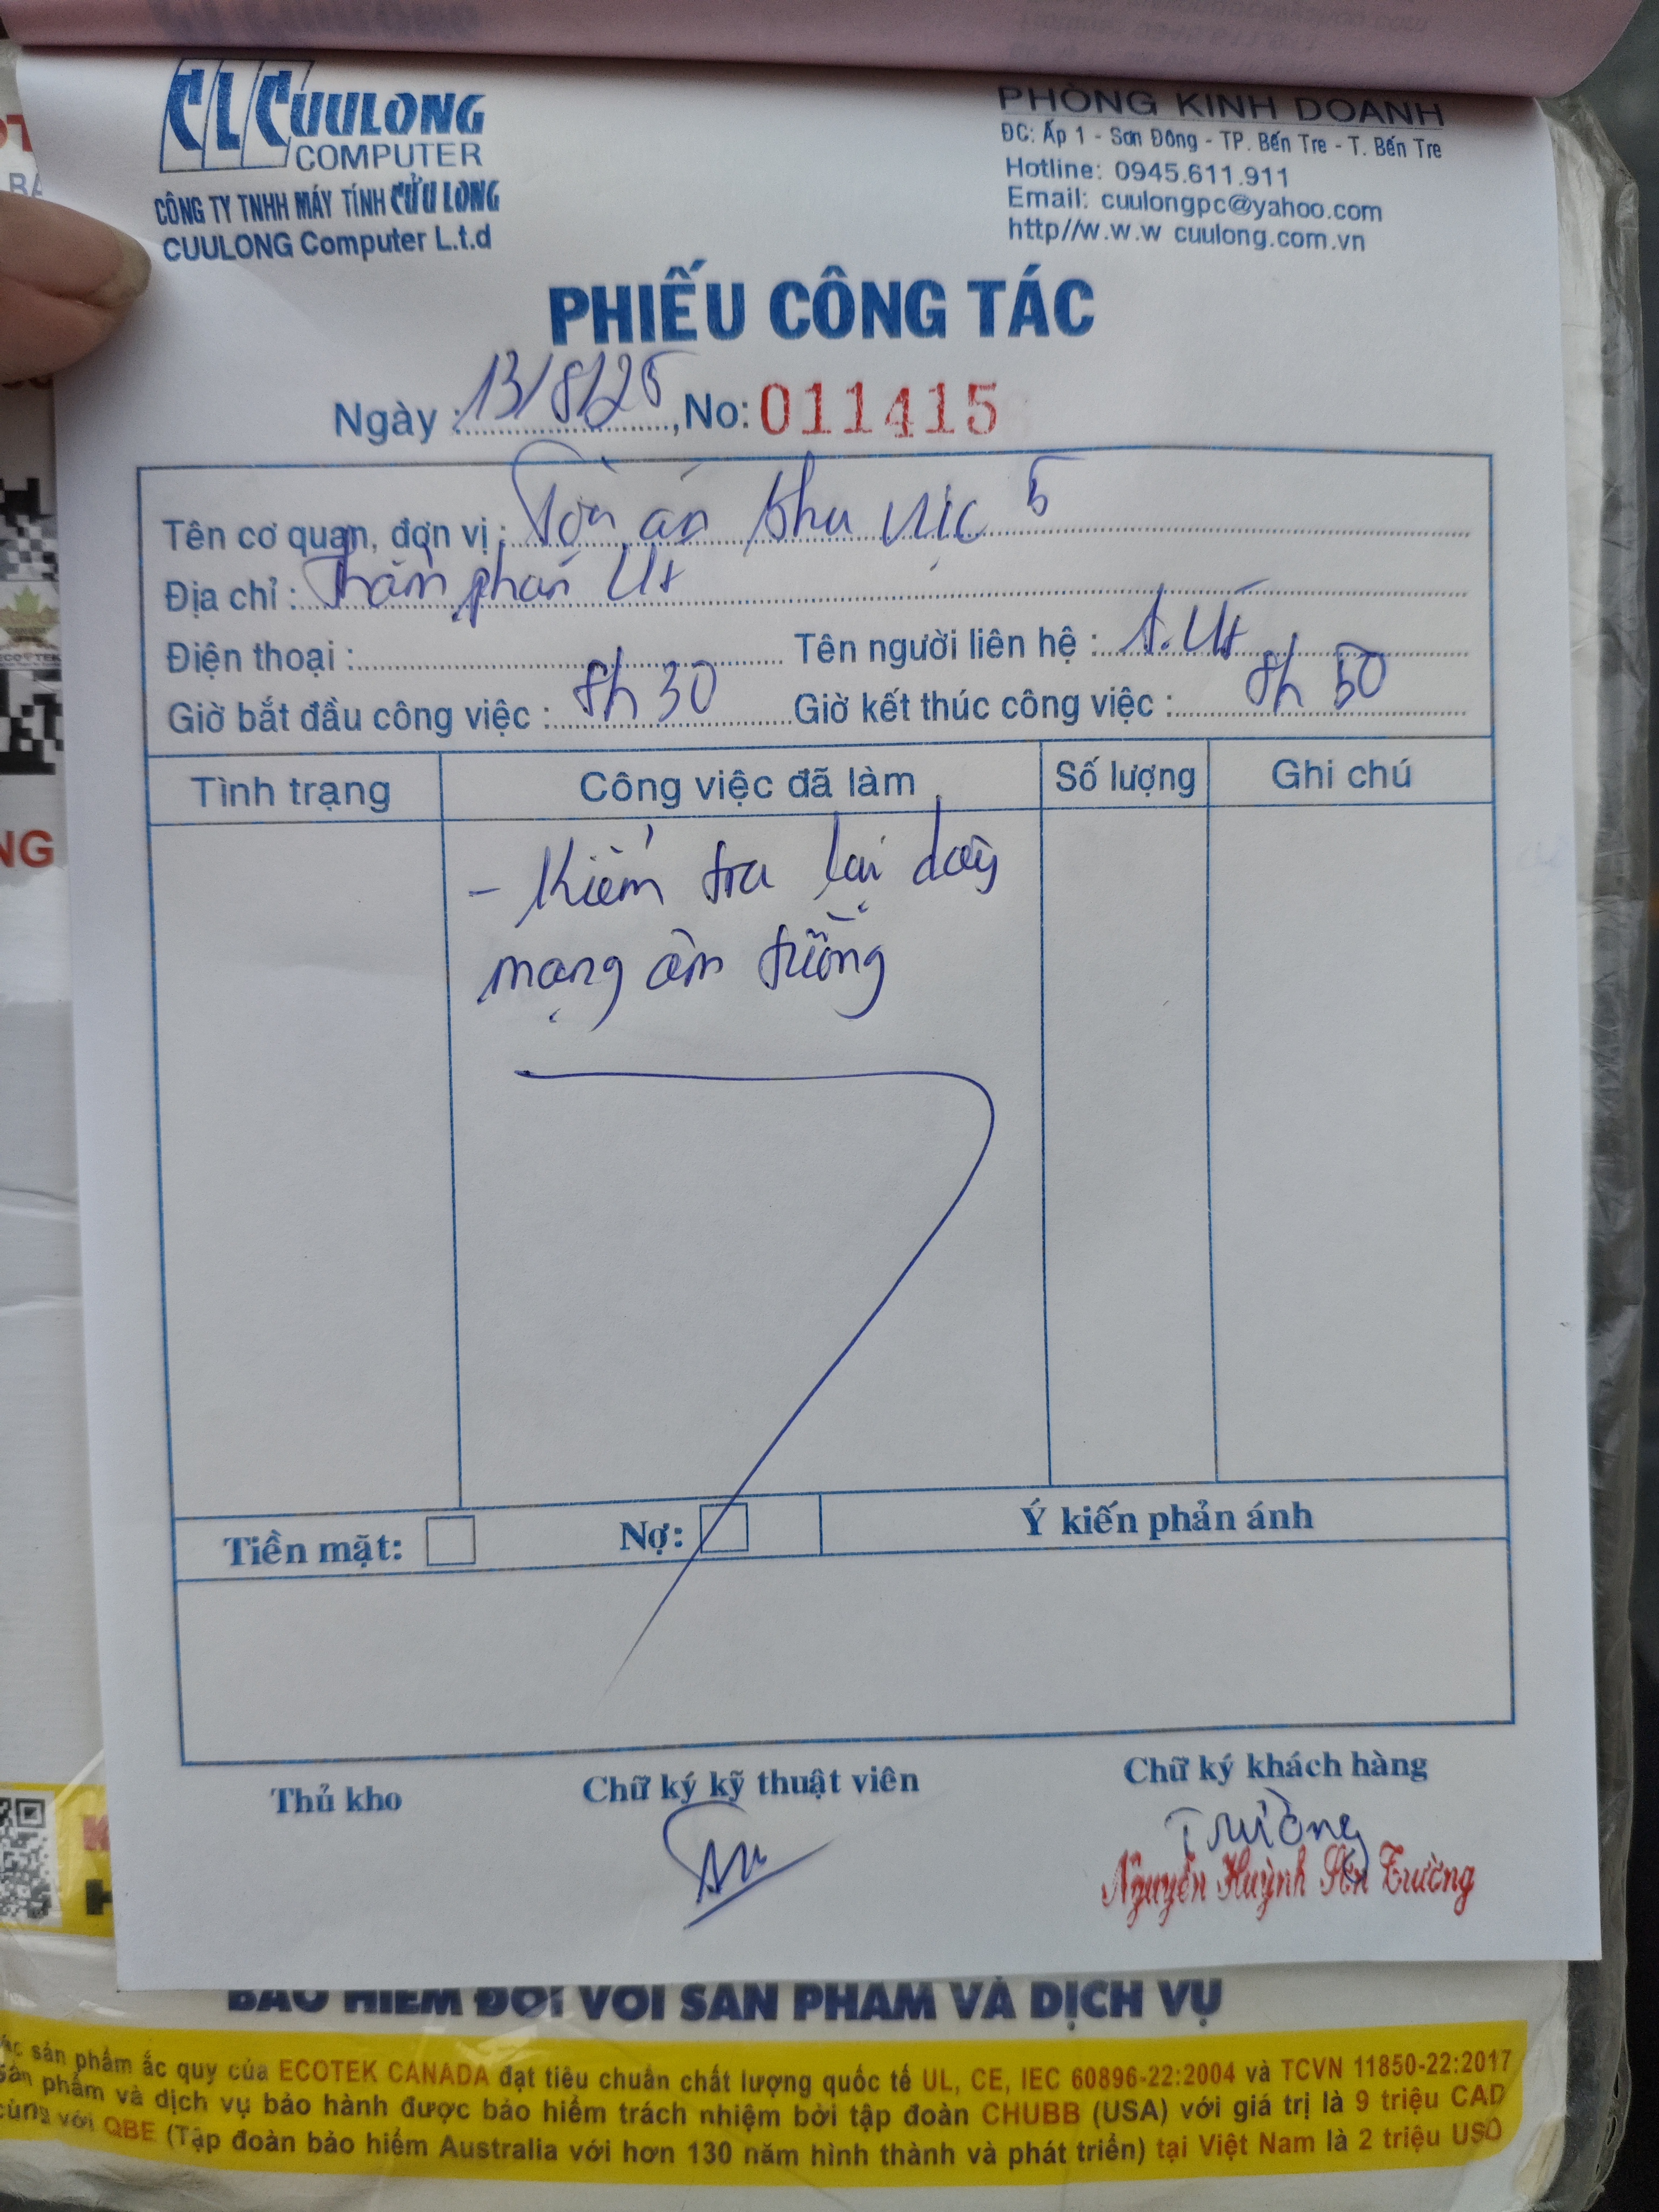 CLC CUULONG
COMPUTER
CÔNG TY TNHH MÁY TÍNH CỬU LONG
CUULONG Computer L.t.d
PHÒNG KINH DOANH
ĐC: Ấp 1 - Sơn Đông - TP. Bến Tre - T. Bến Tre
Hotline: 0945.611.911
Email: cuulongpc@yahoo.com
http//w.w.w cuulong.com.vn
PHIẾU CÔNG TÁC
Ngày : 13/8/25, No: 011415
Tên cơ quan, đơn vị : Tòa án khu vực 5
Địa chỉ : Thẩm phán Út
Điện thoại : Tên người liên hệ : A. Út
Giờ bắt đầu công việc : 8h 30 Giờ kết thúc công việc : 8h 50
Tình trạng Công việc đã làm Số lượng Ghi chú
- Kiểm tra lại dây
mạng âm tường
Tiền mặt: Nợ: Ý kiến phản ánh
Thủ kho Chữ ký kỹ thuật viên Chữ ký khách hàng
Trường
Nguyễn Huỳnh Trường
BẢO HIỂM ĐỐI VỚI SẢN PHẨM VÀ DỊCH VỤ
sản phẩm ắc quy của ECOTEK CANADA đạt tiêu chuẩn chất lượng quốc tế UL, CE, IEC 60896-22:2004 và TCVN 11850-22:2017
sản phẩm và dịch vụ bảo hành được bảo hiểm trách nhiệm bởi tập đoàn CHUBB (USA) với giá trị là 9 triệu CAD
cùng với QBE (Tập đoàn bảo hiểm Australia với hơn 130 năm hình thành và phát triển) tại Việt Nam là 2 triệu USD